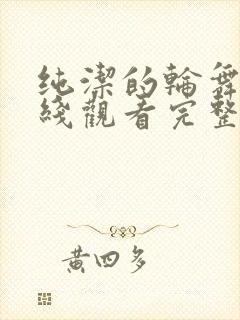 纯潔的輪舞
綫觀看完整
黃四多